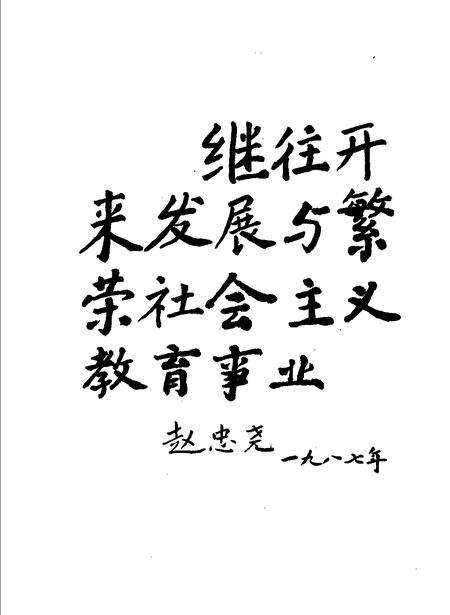 继往开
来发展与繁
荣社会主义
教育事业
赵忠尧
一九八七年